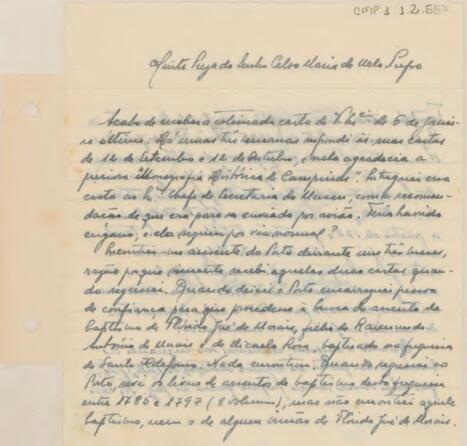 CMP 1.1.2.557
Muito Prezado Senhor Celso Maria de Mello Pupo
Acabo de receber a estimada carta de V. Exc.ia de 6 de Janei-
ro último. Há umas três semanas respondi às suas cartas
de 12 de Setembro e 12 de Outubro, e nela agradecia a
preciosa "Monografia Histórica de Campinas". Entreguei essa
carta ao Sr. Chefe da Secretaria do Museu, com a recomen-
dação de que era para ser enviada por avião. Teria havido
engano, e ela seguiu por via normal?
Encontrei-me ausente do Porto durante uns três meses,
razão porque sòmente recebi aquelas duas cartas quan-
do regressei. Quando deixei o Porto encarreguei pessoa
de confiança para que procedesse à busca do assento de
baptismo de Flórido José de Morais, filho de Raimundo
António de Morais e de Micaela Rosa, baptisado na freguesia
de Santo Ildefonso. Nada encontrou. Quando regressei ao
Porto, revi os livros de assentos de baptismo desta freguesia
entre 1785 e 1797 (8 volumes), mas não encontrei aquele
baptismo, nem o de algum irmão de Flórido José de Morais.